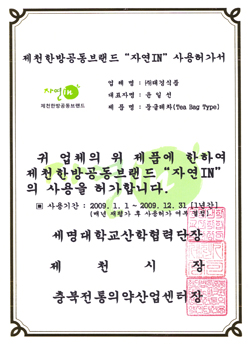 제천한방공동브랜드 "자연IN" 사용허가서
자연IN
제천한방공동브랜드
업 체 명 : ㈜태경식품
대표자명 : 윤일선
제 품 명 : 둥글레차(Tea Bag Type)
귀 업체의 위 제품에 한하여
제천한방공동브랜드 "자연IN"
의 사용을 허가합니다.
▣ 사용기간 : 2009. 1. 1 ~ 2009. 12. 31 [1년간]
(매년 재평가 후 사용허가 여부 결정)
세명대학교산학협력단장
제 천 시 장
충북전통의약산업센터장